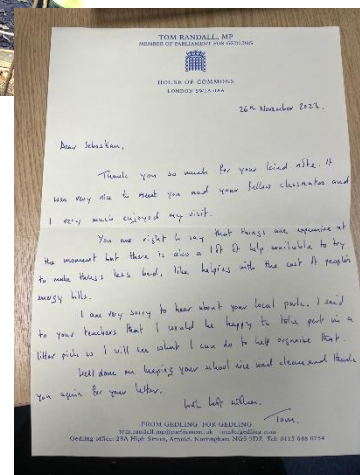 TOM RANDALL, MP
MEMBER OF PARLIAMENT FOR GEDLING
HOUSE OF COMMONS
LONDON SW1A 0AA
26th November 2022.
Dear Sebastian,
Thank you so much for your kind note. It
was very nice to meet you and your fellow classmates and
I very much enjoyed my visit.
You are right to say that things are expensive at
the moment but there is also a lot of help available to try
to make things less bad, like helping with the cost of people's
energy bills.
I am very sorry to hear about your local park. I said
to your teachers that I would be happy to take part in a
litter pick so I will see what I can do to help organise that.
Well done on keeping your school nice and clean and thank
you again for your letter.
With best wishes,
Tom.
FROM GEDLING, FOR GEDLING
tom.randall.mp@parliament.uk
Gedling office: 28A High Street, Arnold, Nottingham NG5 7DZ Tel: